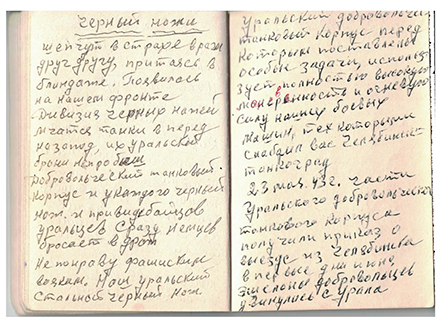 Черный ножи
шепчут в страхе враги
друг другу, притаясь в
блиндаже. Появилась
на нашем фронте
Дивизия черных ножей
мчатся танки в перед
на запад, их уральской
брони не
Добровольческий танковый.
Корпус и у каждого черный
нож. И при виде байцов
уральцев сразу немцев
бросает в дрож
Не понраву фашиским
воякам. Наш уральский
Стальной черный нож
Уральский добровольчес
танковый корпус перед
которым поставлены
особые задачи, использ
зует полностью высокую
маневренность и огневую
силу наших боевых
машин, тех которыми
снабдил вас Челябинск-
танкоград
23 мая. 43г. части
Уральского добровольческого
танкового корпуса
получили приказ о
выезде из Челябинска
в первые дни июня
эшелоны добровольцев
двинулись с Урала